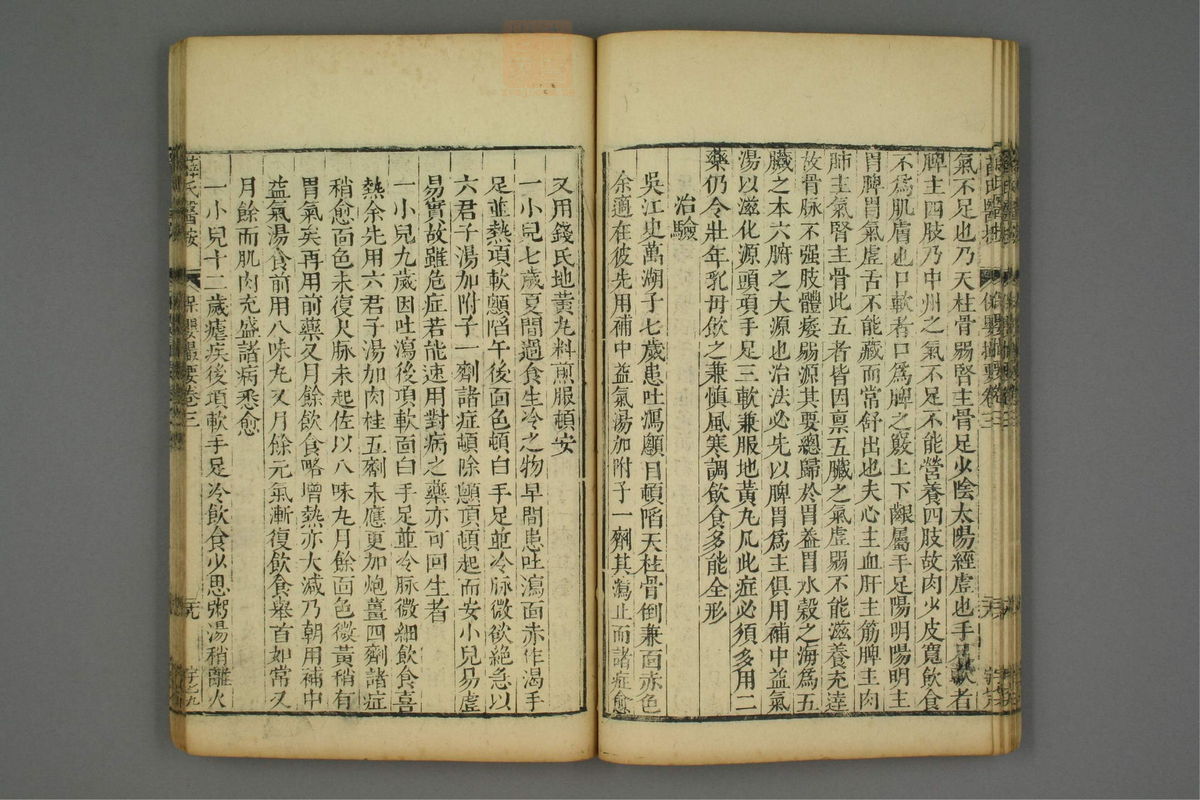 氣不足也乃天柱骨弱腎主骨足少陰太陽經虛也手足軟者
脾主四肢乃中州之氣不足不能營養四肢故肉少皮寬飲食
不爲肌膚也口軟者口爲脾之竅上下齦屬手足陽明陽明主
胃脾胃氣虛舌不能藏而常舒出也夫心主血肝主筋脾主肉
肺主氣腎主骨此五者皆因稟五臟之氣虛弱不能滋養充達
故骨脉不强肢體痿弱源其要總歸於胃葢胃水穀之海爲五
臟之本六腑之大源也治法必先以脾胃爲主俱用補中益氣
湯以滋化源頭項手足三軟兼服地黃丸凡此症必須多用二
藥仍令壯年乳母飲之兼愼風寒調飲食多能全形
治驗
吳江史萬湖子七歲患吐瀉顖目頓陷天柱骨倒兼面赤色
余適在彼先用補中益氣湯加附子一劑其瀉止而諸症愈
又用錢氏地黃丸料煎服頓安
一小兒七歲夏間過食生冷之物早間患吐瀉面赤作渴手
足並熱項軟顖陷午後面色頓白手足並冷脉微欲絶急以
六君子湯加附子一劑諸症頓除顖頂頓起而安小兒易虛
易實故雖危症若能速用對病之藥亦可回生者
一小兒九歲因吐瀉後項軟面白手足並冷脉微細飲食喜
熱余先用六君子湯加肉桂五劑未應更加炮薑四劑諸症
稍愈面色未復尺脉未起佐以八味丸月餘面色微黃稍有
胃氣矣再用前藥又月餘飲食略增熱亦大減乃朝用補中
益氣湯食前用八味丸又月餘元氣漸復飲食舉首如常又
月餘而肌肉充盛諸病悉愈
一小兒十二歲瘧疾後項軟手足冷飲食少思粥湯稍離火
薛氏醫按
保嬰撮要卷三